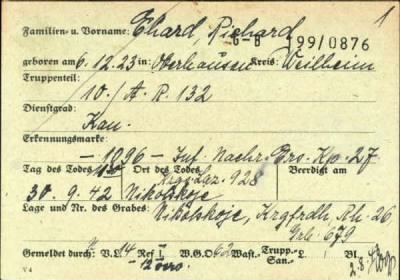 1
Familien- u. Vorname: Ehard, Richard
G-B 199/0876
geboren am 6.12.23 in: Oberhausen Kreis: Weilheim
Truppenteil:
10./A. R. 132
Dienstgrad:
Kan.
Erkennungsmarke:
-1896- Inf. Nachr. Ers. Kp. 27
Tag des Todes Ort des Todes Beerdigt am
Krgs. Laz. 928
30.9.42 Nikolskoje
Lage und Nr. des Grabes:
Nikolskoje, Krgfrdh, Rh. 26
Grb. 679
Gemeldet durch: V.L. 14 Ref I W.G.O. 62 Wast. Trupp.- Bl.
San.-
V 4